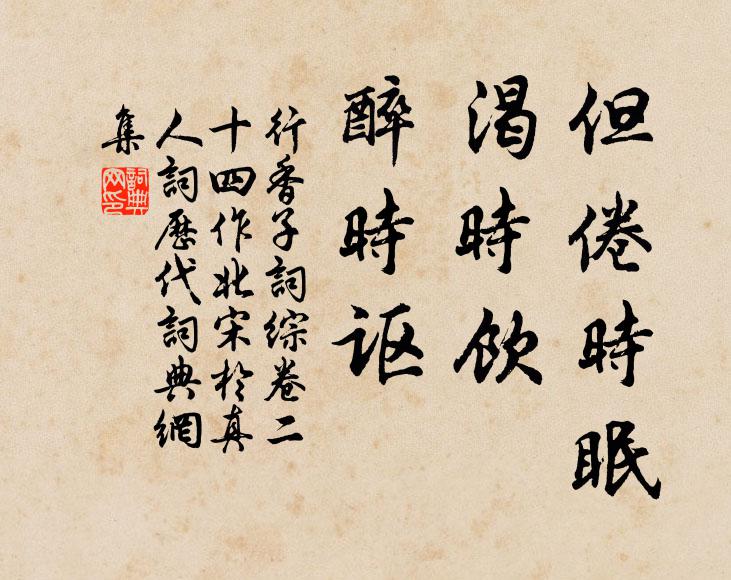 但倦時眠
渴時飲
醉時讴
行香子詞綜卷二
十四作北宋於真
人詞歷代詞典網
集
詞典
网印